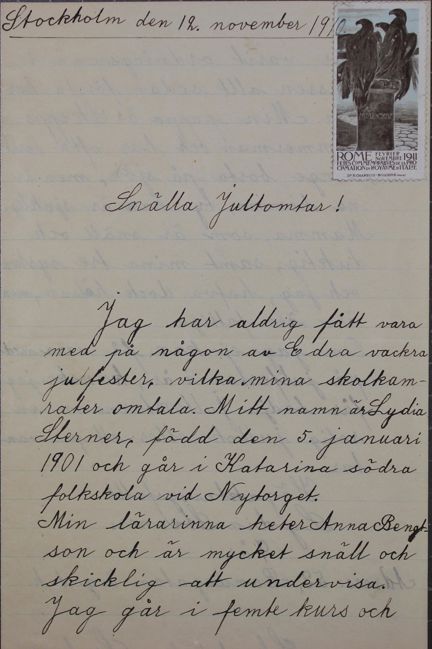 Stockholm den 12. november 1910.
ROME FÉVRIER NOVEMBRE 1911
Snälla Jultomtar!
Jag har aldrig fått vara
med på någon av Edra vackra
julfester, vilka mina skolkam-
rater omtala. Mitt namn är Lydia
Sterner, född den 5. januari
1901 och går i Katarina södra
folkskola vid Nytorget.
Min lärarinna heter Anna Bengt-
son och är mycket snäll och
skicklig att undervisa.
Jag går i femte kurs och